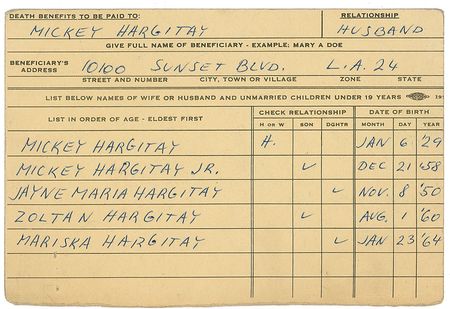 DEATH BENEFITS TO BE PAID TO: RELATIONSHIP
MICKEY HARGITAY HUSBAND
GIVE FULL NAME OF BENEFICIARY - EXAMPLE: MARY A DOE
BENEFICIARY'S ADDRESS 10100 SUNSET BLVD. L.A. 24
STREET AND NUMBER CITY, TOWN OR VILLAGE ZONE STATE
LIST BELOW NAMES OF WIFE OR HUSBAND AND UNMARRIED CHILDREN UNDER 19 YEARS
LIST IN ORDER OF AGE - ELDEST FIRST CHECK RELATIONSHIP DATE OF BIRTH
H OR W SON DGHTR MONTH DAY YEAR
MICKEY HARGITAY H. JAN 6 '29
MICKEY HARGITAY JR. ✓ DEC 21 '58
JAYNE MARIA HARGITAY ✓ NOV. 8 '50
ZOLTAN HARGITAY ✓ AUG. 1 '60
MARISKA HARGITAY ✓ JAN 23 '64